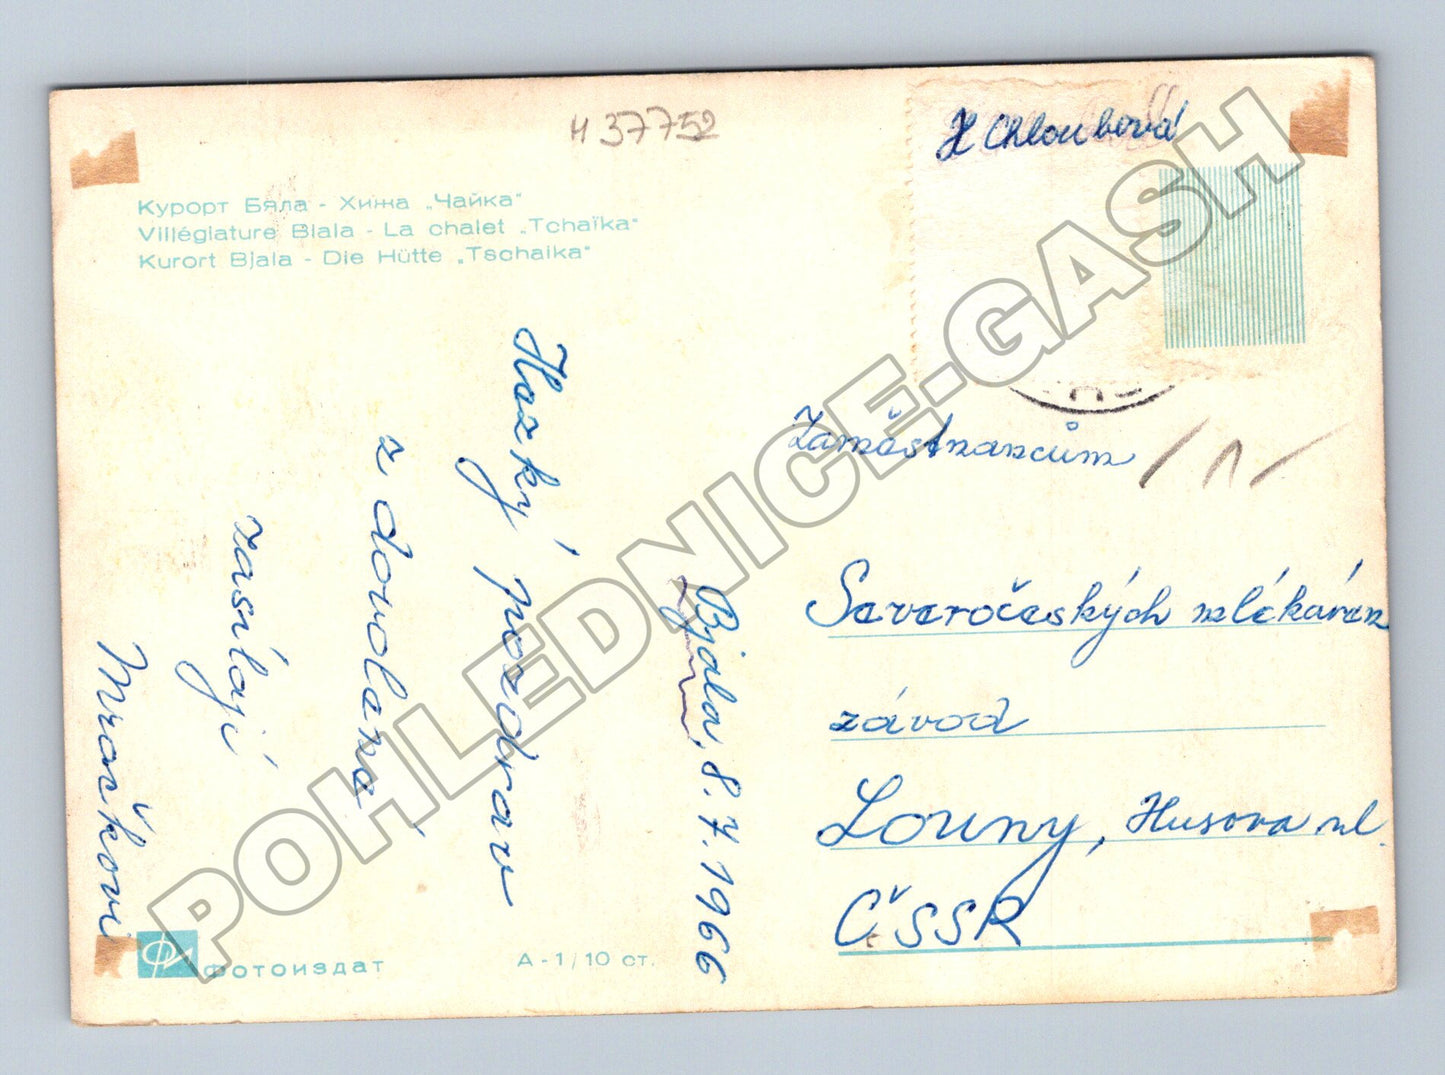 H 37752
H Chloubová
Курорт Бяла - Хижа „Чайка"
Villégiature Biala - La chalet „Tchaïka"
Kurort Bjala - Die Hütte „Tschaika"
Bjala, 8.7.1966
Hezký pozdrav
z dovolené
zasílají
Mračkovi
Zaměstnancům
Severočeských mlékáren
závod
Louny, Husova ul.
ČSSR
ФОТОИЗДАТ
A - 1 / 10 ст.
POHLEDNICE-GASH